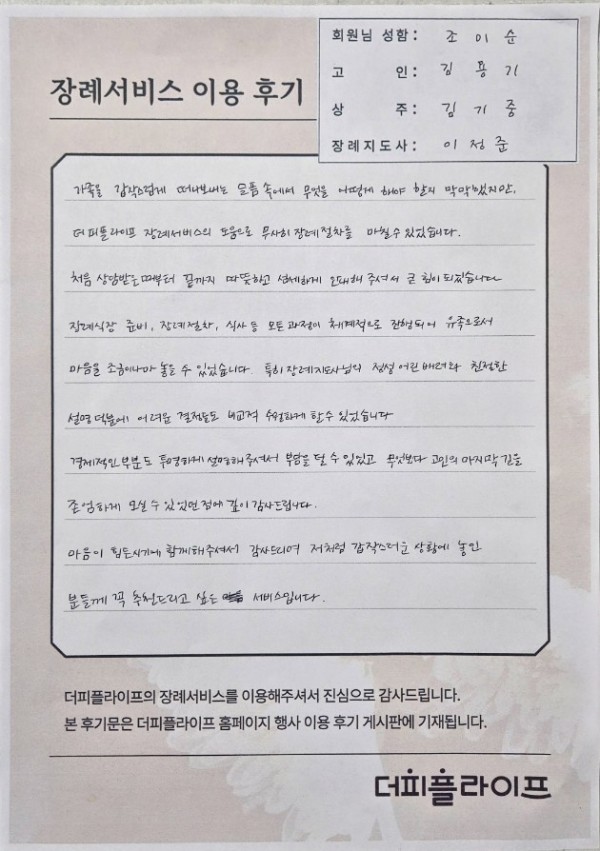 장례서비스 이용 후기
회원님 성함 : 조이순
고 인 : 김용기
상 주 : 김기중
장례지도사 : 이정준
가족을 갑작스럽게 떠나보내는 슬픔 속에서 무엇을 어떻게 해야 할지 막막했지만,
더피플라이프 장례서비스의 도움으로 무사히 장례절차를 마칠 수 있었습니다.
처음 상담받는 때부터 끝까지 따뜻하고 섬세하게 응대해 주셔서 큰 힘이 되었습니다
장례식장 준비, 장례절차, 식사 등 모든 과정이 체계적으로 진행되어 유족으로서
마음을 조금이나마 놓을 수 있었습니다. 특히 장례지도사님의 정성 어린 배려와 친절한
설명 덕분에 어려운 결정들도 비교적 수월하게 할 수 있었습니다
경제적인 부분도 투명하게 설명해 주셔서 부담을 덜 수 있었고 무엇보다 고인의 마지막 길을
존엄하게 모실 수 있었던 점에 깊이 감사드립니다.
마음이 힘든시기에 함께해주셔서 감사드리며 저처럼 갑작스러운 상황에 놓인
분들께 꼭 추천드리고 싶은 서비스입니다.
더피플라이프의 장례서비스를 이용해주셔서 진심으로 감사드립니다.
본 후기문은 더피플라이프 홈페이지 행사 이용 후기 게시판에 기재됩니다.
더피플라이프